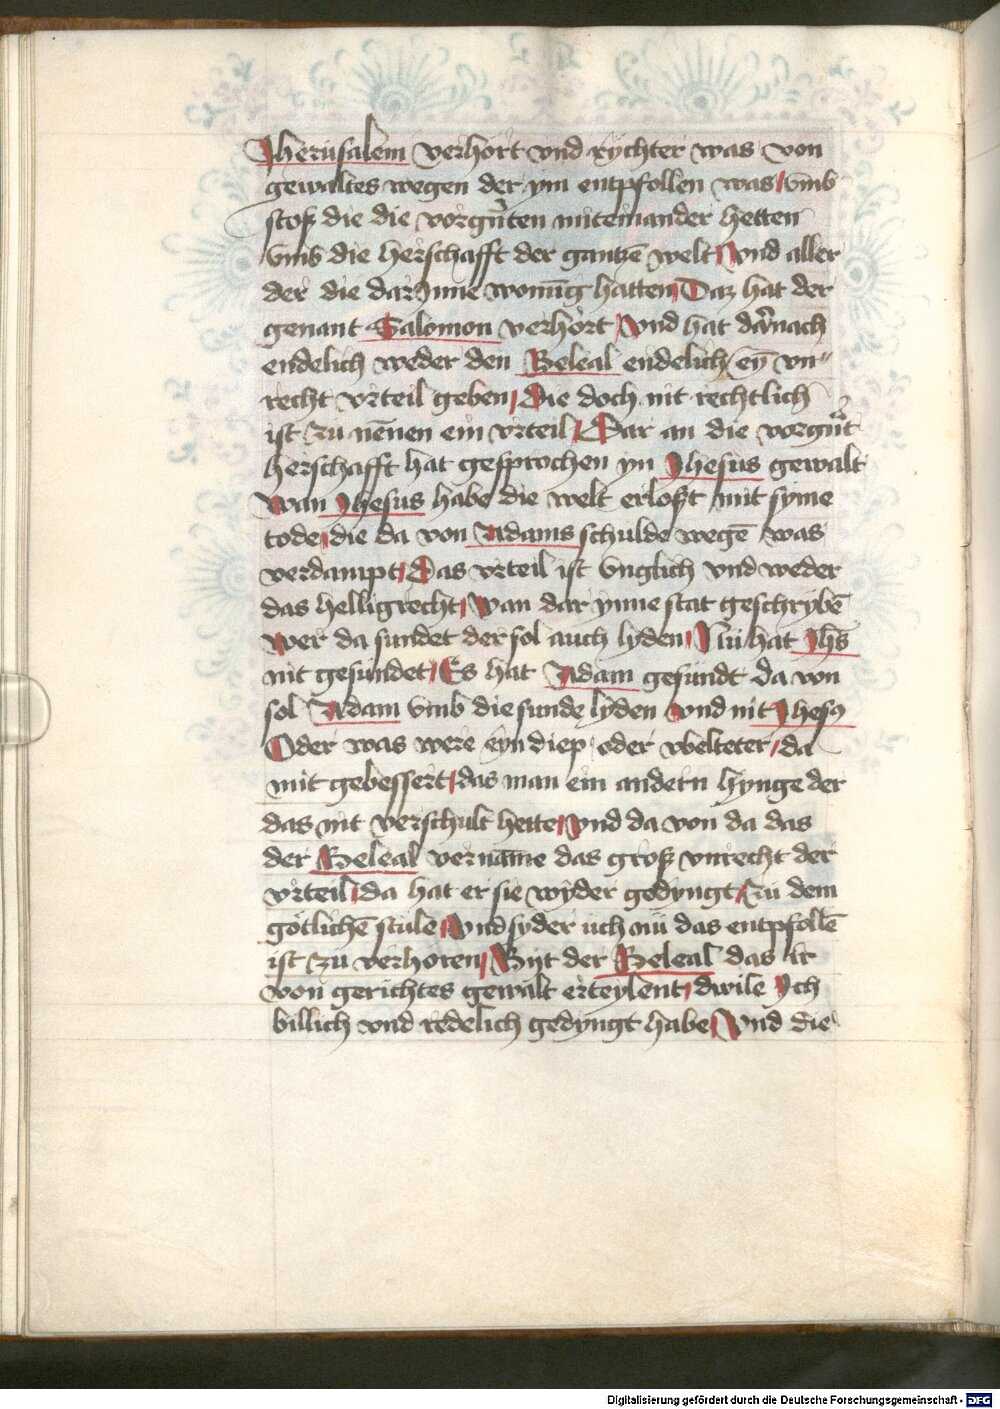 Jherusalem verhort vnd rychter was von
gewaltes wegen der ym entpfollen was / vmb
stoß die die vorgnten miteinander hetten
vmb die herschafft der gantze welt / Vnd aller
der die dar Jnne wonung hatten / Daz hat der
genant Salomon verhort / Vnd hat darnach
endelich weder den Beleal endelich ey vn"
recht vrteil geben / Die doch nit rechtlich
ist zu nenen ein vrteil / Dar an die vorgnt
herschafft hat gesprochen yn Jhesus gewalt
Wan Jhesus habe die welt erloßt mit syme
tode / die da von Adams schulde wegē was
verdampt / Das vrteil ist vnglich vnd weder
das hellig recht / Wan dar ynne stat geschrybē
Wer da sundet der sol auch lyden / Nu hat Jhs
nit gesundet / Es hat Adam gesundt da von
sol Adam vmb die sunde lyden Vnd nit Jhesꝰ
Oder was were eyn diep oder vbelteter / da
mit gebessert / das man ein andern hynge der
das nit verschult hette / Vnd da von da das
der Beleal vername das groß vnrecht der
vrteil / da hat er sie wyder gedyngt / Zu dem
götlichē stule / Vnd syder uch nu das entpfollē
ist zu verhoren / Byt der Beleal das ir
von gerichtes gewalt erteylent / dwile Jch
billich vnd redelich gedyngt habe / Vnd die
Digitalisierung gefördert durch die Deutsche Forschungsgemeinschaft - DFG